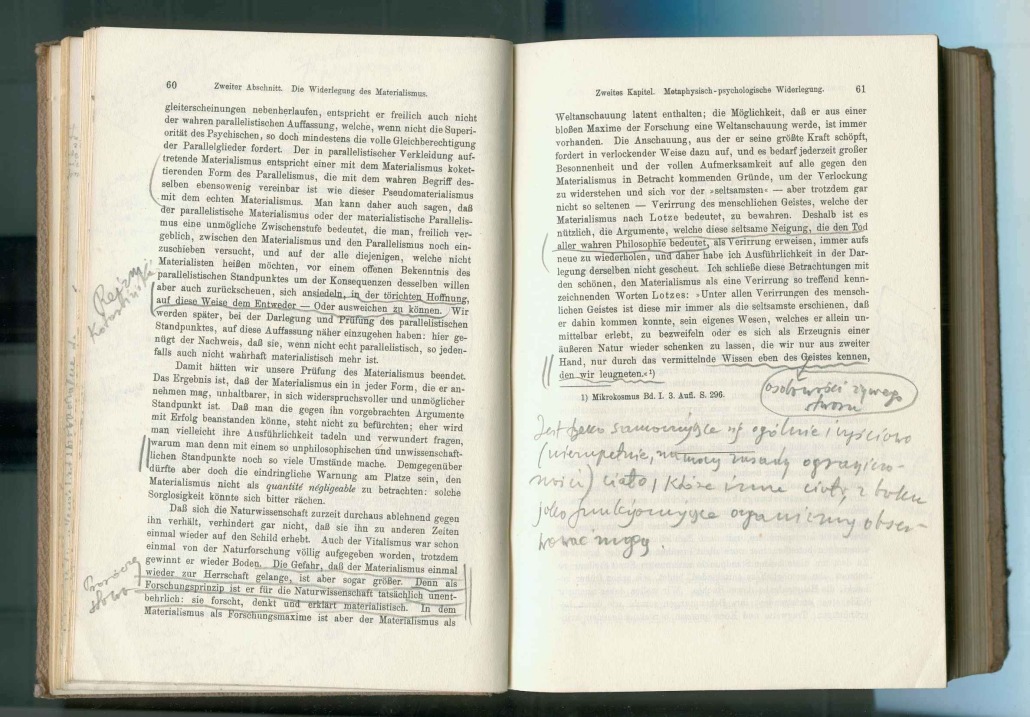 60 Zweiter Abschnitt. Die Widerlegung des Materialismus.
gleiterscheinungen nebenherlaufen, entspricht er freilich auch nicht
der wahren parallelistischen Auffassung, welche, wenn nicht die Superi-
orität des Psychischen, so doch mindestens die volle Gleichberechtigung
der Parallelglieder fordert. Der in parallelistischer Verkleidung auf-
tretende Materialismus entspricht einer mit dem Materialismus koket-
tierenden Form des Parallelismus, die mit dem wahren Begriff des-
selben ebensowenig vereinbar ist wie dieser Pseudomaterialismus
mit dem echten Materialismus. Man kann daher auch sagen, daß
der parallelistische Materialismus oder der materialistische Parallelis-
mus eine unmögliche Zwischenstufe bedeutet, die man, freilich ver-
geblich, zwischen den Materialismus und den Parallelismus noch ein-
zuschieben versucht, und auf der alle diejenigen, welche nicht
Materialisten heißen möchten, vor einem offenen Bekenntnis des
parallelistischen Standpunktes um der Konsequenzen desselben willen
aber auch zurückscheuen, sich ansiedeln, in der törichten Hoffnung,
auf diese Weise dem Entweder — Oder ausweichen zu können. Wir
werden später, bei der Darlegung und Prüfung des parallelistischen
Standpunktes, auf diese Auffassung näher einzugehen haben: hier ge-
nügt der Nachweis, daß sie, wenn nicht echt parallelistisch, so jeden-
falls auch nicht wahrhaft materialistisch mehr ist.
Damit hätten wir unsere Prüfung des Materialismus beendet.
Das Ergebnis ist, daß der Materialismus ein in jeder Form, die er an-
nehmen mag, unhaltbarer, in sich widerspruchsvoller und unmöglicher
Standpunkt ist. Daß man die gegen ihn vorgebrachten Argumente
mit Erfolg beanstanden könne, steht nicht zu befürchten; eher wird
man vielleicht ihre Ausführlichkeit tadeln und verwundert fragen,
warum man denn mit einem so unphilosophischen und unwissenschaft-
lichen Standpunkt noch so viele Umstände mache. Demgegenüber
dürfte aber doch die eindringliche Warnung am Platze sein, den
Materialismus nicht als quantité négligeable zu betrachten: solche
Sorglosigkeit könnte sich bitter rächen.
Daß sich die Naturwissenschaft zurzeit durchaus ablehnend gegen
ihn verhält, verhindert gar nicht, daß sie ihn zu anderen Zeiten
einmal wieder auf den Schild erhebt. Auch der Vitalismus war schon
einmal von der Naturforschung völlig aufgegeben worden, trotzdem
gewinnt er wieder Boden. Die Gefahr, daß der Materialismus einmal
wieder zur Herrschaft gelange, ist aber sogar größer. Denn als
Forschungsprinzip ist er für die Naturwissenschaft tatsächlich unent-
behrlich: sie forscht, denkt und erklärt materialistisch. In dem
Materialismus als Forschungsmaxime ist aber der Materialismus als
Zweites Kapitel. Metaphysisch-psychologische Widerlegung. 61
Weltanschauung latent enthalten; die Möglichkeit, daß er aus einer
bloßen Maxime der Forschung eine Weltanschauung werde, ist immer
vorhanden. Die Anschauung, aus der er seine größte Kraft schöpft,
fordert in verlockender Weise dazu auf, und es bedarf jederzeit großer
Besonnenheit und der vollen Aufmerksamkeit auf alle gegen den
Materialismus in Betracht kommenden Gründe, um der Verlockung
zu widerstehen und sich vor der »seltsamsten« — aber trotzdem gar
nicht so seltenen — Verirrung des menschlichen Geistes, welche der
Materialismus nach Lotze bedeutet, zu bewahren. Deshalb ist es
nützlich, die Argumente, welche diese seltsame Neigung, die den Tod
aller wahren Philosophie bedeutet, als Verirrung erweisen, immer aufs
neue zu wiederholen, und daher habe ich Ausführlichkeit in der Dar-
legung derselben nicht gescheut. Ich schließe diese Betrachtungen mit
den schönen, den Materialismus als eine Verirrung so treffend kenn-
zeichnenden Worten Lotzes: »Unter allen Verirrungen des mensch-
lichen Geistes ist diese mir immer als die seltsamste erschienen, daß
er dahin kommen konnte, sein eigenes Wesen, welches er allein un-
mittelbar erlebt, zu bezweifeln oder es sich als Erzeugnis einer
äußeren Natur wieder schenken zu lassen, die wir nur aus zweiter
Hand, nur durch das vermittelnde Wissen eben des Geistes kennen,
den wir leugneten.«¹)
1) Mikrokosmus Bd. I. 3. Aufl. S. 296.
osobowości żywego
stworu
Jest tylko samoczujące się ogólnie i częściowo
ciało, które inne ciały z boku
jako funkcjonujące organizmy obser-
wować mogą.